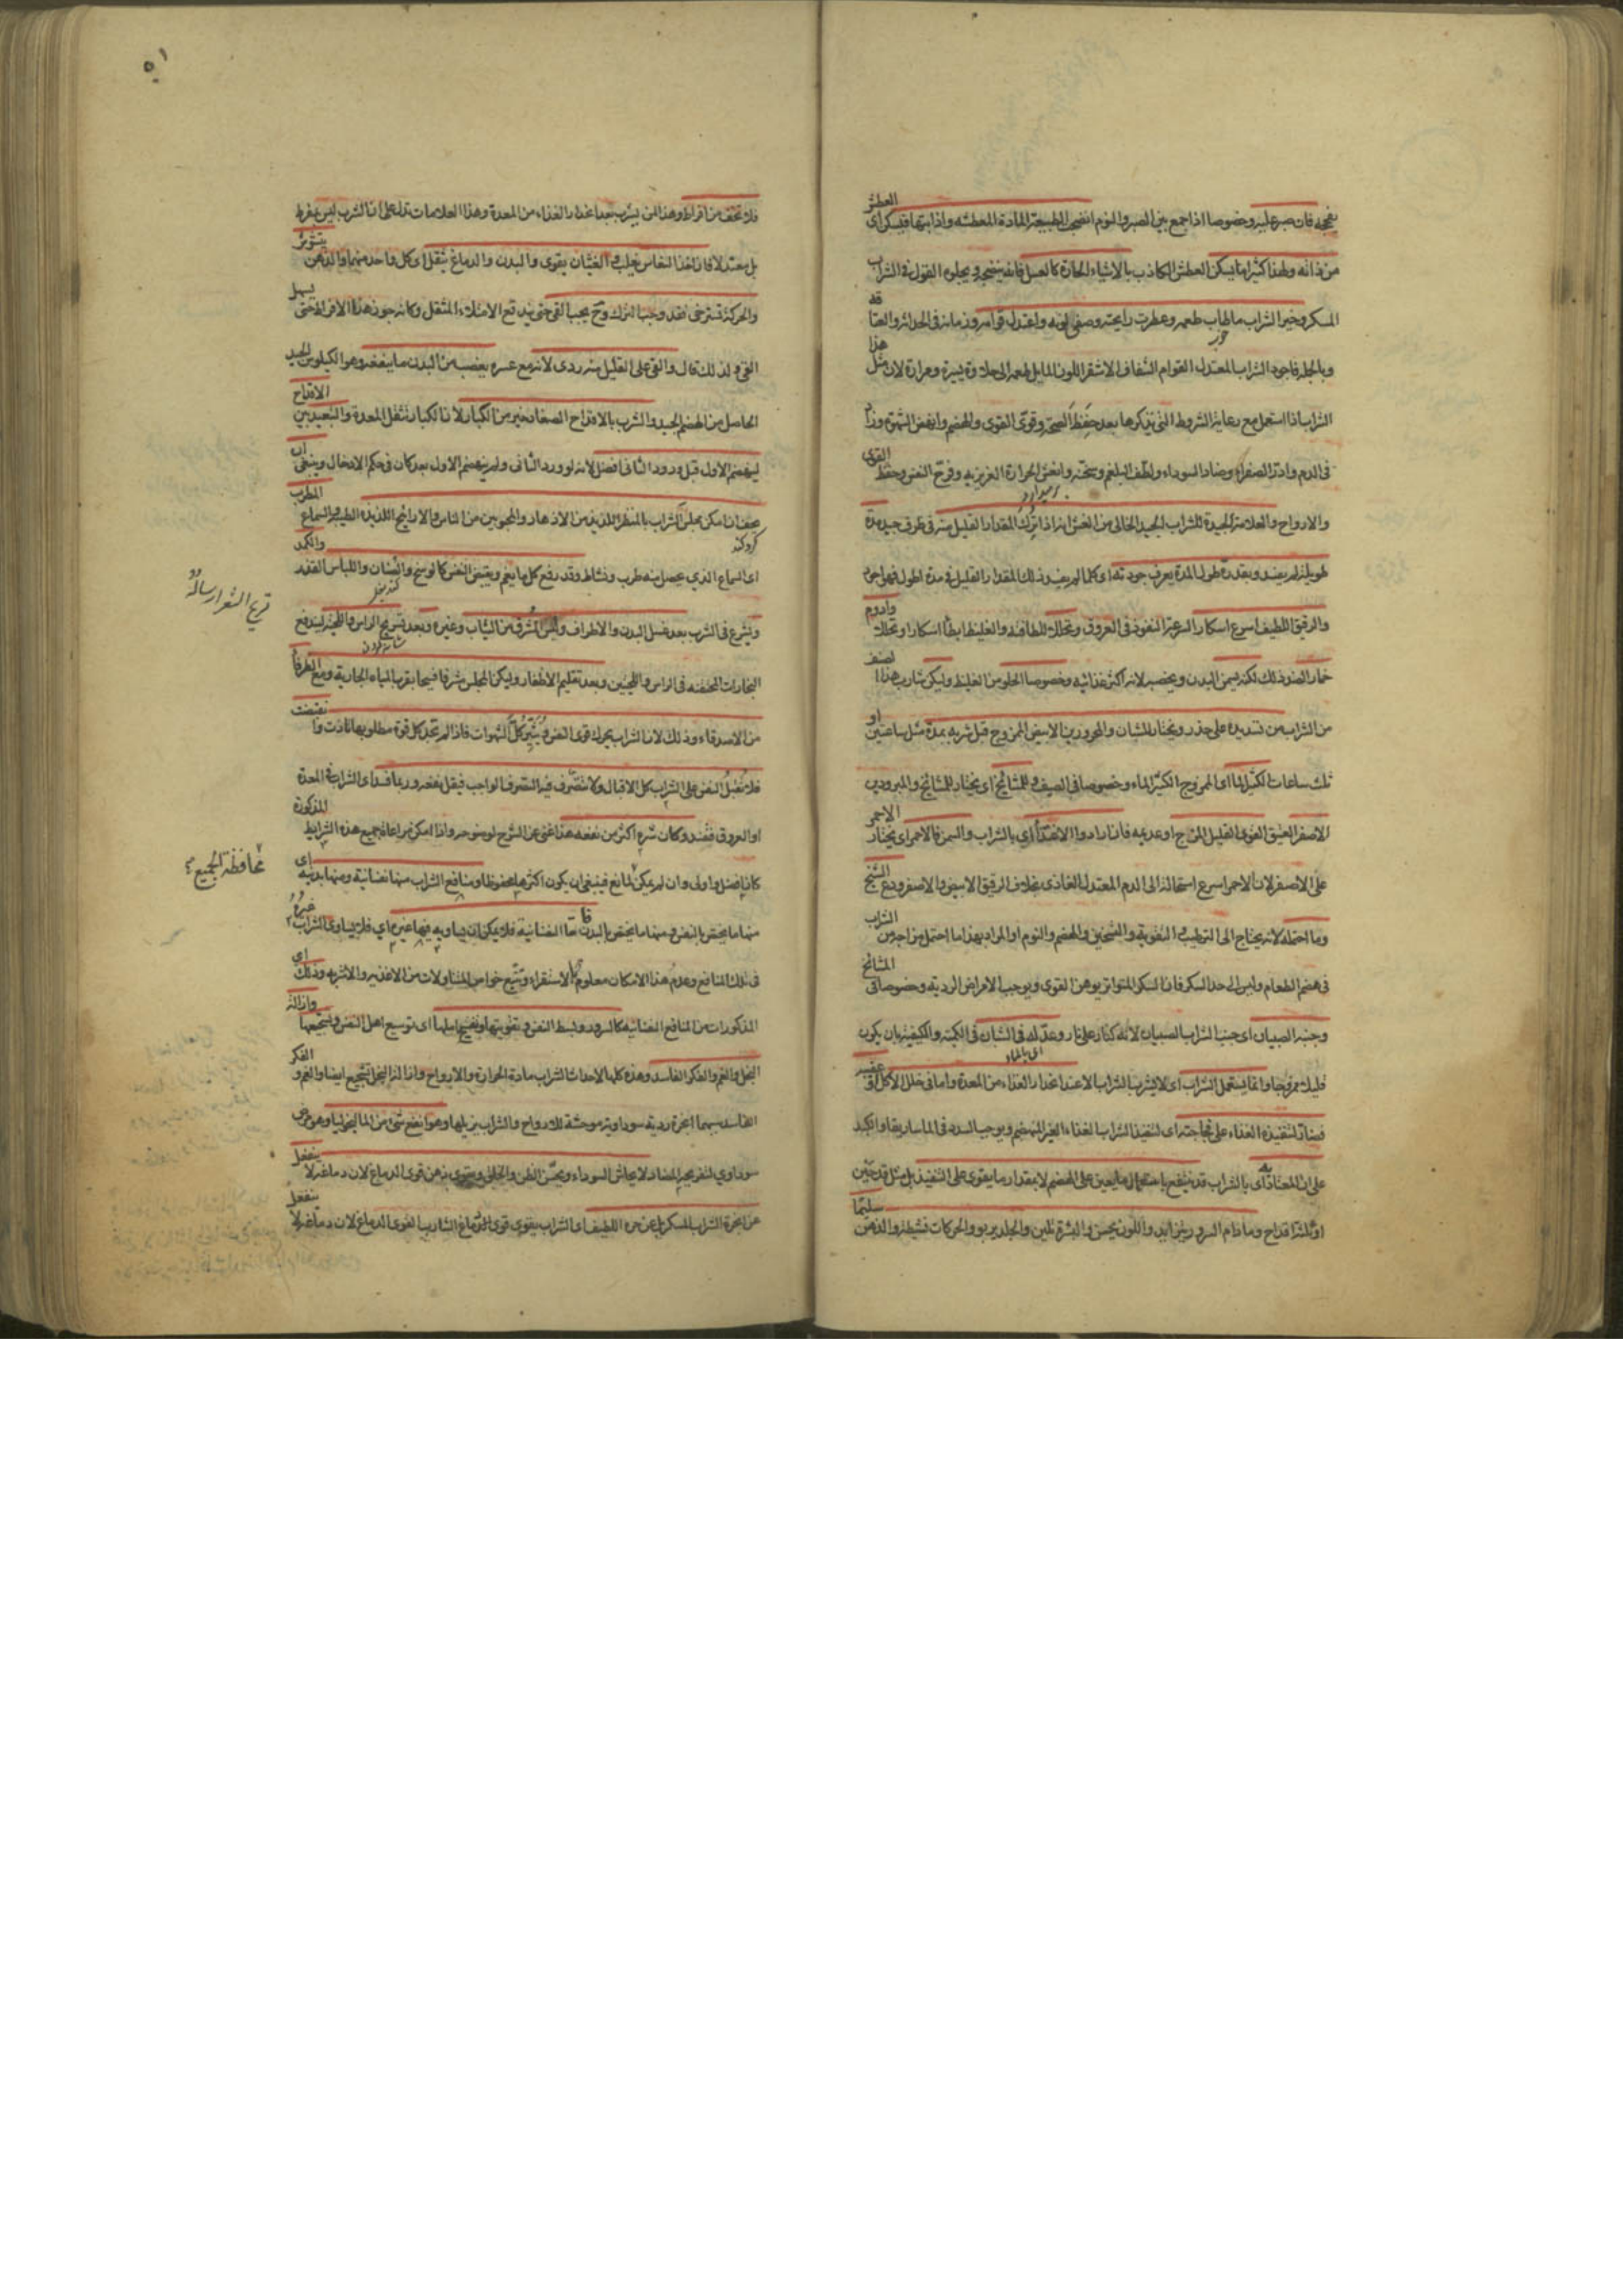 العطش
بفجه فان صبر عليه وخصوصا اذا جمع بين الصبر والنوم انضجت الطبيعة المادة المعطشة واذابتها فيسكن اى
من ذاته ولهذا كثيرا ما يسكن العطش الكاذب بالاشياء الحارة كالعسل فانه ينضجه ويحلوه القول فى الشراب
المسكر وخير الشراب ما طاب طعمه وعطرت رايحته وصفى لونه واعتدل قوامه وزمانه فى الحداثة والعتا قد
وبالجملة فاجود الشراب المعتدل القوام الشفاف الاشقر اللون المايل طعمه الى حلاوة يسيرة ومرارة لان مثل هذا
الشراب اذا استعمل مع رعاية الشروط التى نذكرها بعد حفظ الصحة وقوى القوى والهضم وانهض الشهوة وزاد
فى الدم وادر الصفراء وضاد السوداء ولطف البلغم وسخنه وانعش الحرارة الغريزية وفرح النفس وحفظ القوى
والارواح والعلامة الجيدة للشراب الجيد الخالى من الغش انه اذا ترك المقدار القليل منه فى ظرف جيد مدة
طويلة لم يفسد وبقدر طول المدة يعرف جودته اى كلما لم يفسد ذلك المقدار القليل فى مدة اطول فهو اجود
والرقيق اللطيف اسرع اسكارا لسرعة النفوذ فى العروق وتحللا للطافته والغليظ ابطأ اسكارا وتحللا وادوم
خمارا لضد ذلك لكنه يسمن البدن ويخصبه لانه اكثر غذائية وخصوصا الحلو من الغليظ وليكن شاربه هذا الصنف
من الشراب من تسديده على حذر ويختار للشبان والمحرورين الابيض الممزوج قبل شربه بمدة مثل ساعتين او
ثلث ساعات الكثير الماء اى الممزوج الكثير الماء وخصوصا فى الصيف وللمشائخ اى يختار للمشائخ والمبرودين
الاصفر العتيق القوى القليل المزج او عديمه فان ارادوا الاغتذاء اى بالشراب والسمن فالاحمر اى يختار الاحمر
على الاصفر لان الاحمر اسرع استحالة الى الدم المعتدل الغاذى بخلاف الرقيق الابيض والاصفر ودع الشيخ
وما احتمله لانه يحتاج الى الترطيب والتقوية والتسخين والهضم والنوم او المراد بهذا ما احتمل مزاجه من الشراب
فى هضم الطعام وليس الى حد السكر فان السكر المتواتر يوهن القوى ويوجب الامراض الردية وخصوصا فى المشائخ
وجنبه الصبيان اى جنب الشراب الصبيان لانه كنار على نار وعدله فى الشبان فى الكمية والكيفية بان يكون
قليلا ممزوجا وانما يستعمل الشراب اى لا يشرب الشراب الا عند انحدار الغذاء من المعدة واما فى خلل الاكل او عقيبه
فضار لتنفيذه الغذاء على فجاجته اى لتنفيذ الشراب الغذاء الغير المنهضم ويوجب السدد فى الماساريقا والكبد
على ان المعتاد اى بالشراب قد ينتفع باستعمال ما يعين على الهضم لا بمقدار ما يقوى على التنفيذ بل مثل قدحين
او ثلثة اقداح وما دام السرور يتزايد واللون يحسن والبشرة تلين والجلد يربو والحركات نشيطة والذهن سليما
فلا تخف من افراطه وهذا لمن يشرب بعد انحدار الغذاء من المعدة وهذا العلامات تدل على ان الشراب ليس بمفرط
بل معتدل فان اخذ النعاس يغلب والغثيان يقوى والبدن والدماغ يثقل اى كل واحد منهما والذهن يتشوش
والحركة تسترخى فقد وجب الترك وح يجب القى حتى يندفع الامتلاء المثقل وكانه جوز هذا الافراط حتى يسهل
القى ولذلك قال والقى على القليل منه ردى لانه مع عسره يغصب من البدن ما ينفعه وهو الكيلوس الجيد
الحاصل من الهضم الجيد والشرب بالاقداح الصغار خير من الكبار لان الكبار تثقل المعدة والتبعيد بين الاقداح
لينهضم الاول قبل ورود الثانى افضل لانه لو ورد الثانى ولم ينهضم الاول بعد كان فى حكم الادخال وينبغى ان
يحف ان امكن مجلس الشراب بالمنظر اللذيذ من الازهار والمحبوبين من الناس والارائيح اللذيذة الطيبة والسماع المطرب
اى السماع الذي يحصل منه طرب ونشاط وقد رفع كل ما يغم ويقبض النفس كالوسخ والصنان واللباس القذر والكمد
ويشرع فى الشرب بعد غسل البدن والاطراف ولبس المشرق من الثياب وغيره وبعد تسريح الراس واللحية ليندفع
البخارات المحتقنة فى الراس واللحيين وبعد تقليم الاظفار وليكن المجلس مشرقا فسيحا بقرب المياه الجارية ومع الظرفا
من الاصدقاء وذلك لان الشراب يحرك قوى النفس ويثير كل الشهوات فاذا لم تجد كل قوة مطلوبها تاذت وانقبضت
فلا تقبل النفس على الشراب كل الاقبال ولا تتصرف فيه التصرف الواجب فيقل نفعه وربما فسد اى الشراب فى المعدة
او العروق فقتل وكان شره اكثر من نفعه هذا غنى عن الشرح لوضوحه واذا امكن مراعاة جميع هذه الشرايط المذكورة
كان افضل واولى وان لم يمكن لمانع فينبغى ان يكون اكثرها محفوظا ومنافع الشراب منها نفسانية ومنها بدنية اى
منها ما يختص بالنفس ومنها ما يختص بالبدن فاما النفسانية فلا يمكن ان يساويه فيها غيره اي فلا يساوى الشراب غيره
فى تلك المنافع وعدم هذا الامكان معلوم بالاستقراء وتتبع خواص المتناولات من الاغذية والاشربة وذلك اى
المذكورات من المنافع النفسانية كالسرور وبسط النفس وتقويتها وتفسيح املها اى توسيع امل النفس وتشجيعها وازالة
البخل والغم والفكر الفاسد وهذه كلها لاحداث الشراب مادة الحرارة والارواح وازالة البخل تشجيع ايضا والغم والفكر
الفاسد سببهما ابخرة ردية سوداوية موحشة للارواح والشراب يزيلها وهو انفع شئ من الماليخوليا وهو مرض
سوداوي لتفريحه المضاد لايحاش السوداء ويحسن الظن والخلق ويقوى ذهن قوى الدماغ لان دماغه لا ينفعل
عن ابخرة الشراب المسكر بل عن حره اللطيف اى الشراب يقوى قوى الدماغ الشارب القوى الدماغ لان دماغه لا ينفعل
قرع الشعر ارساله
محافظة الجميع
٥١